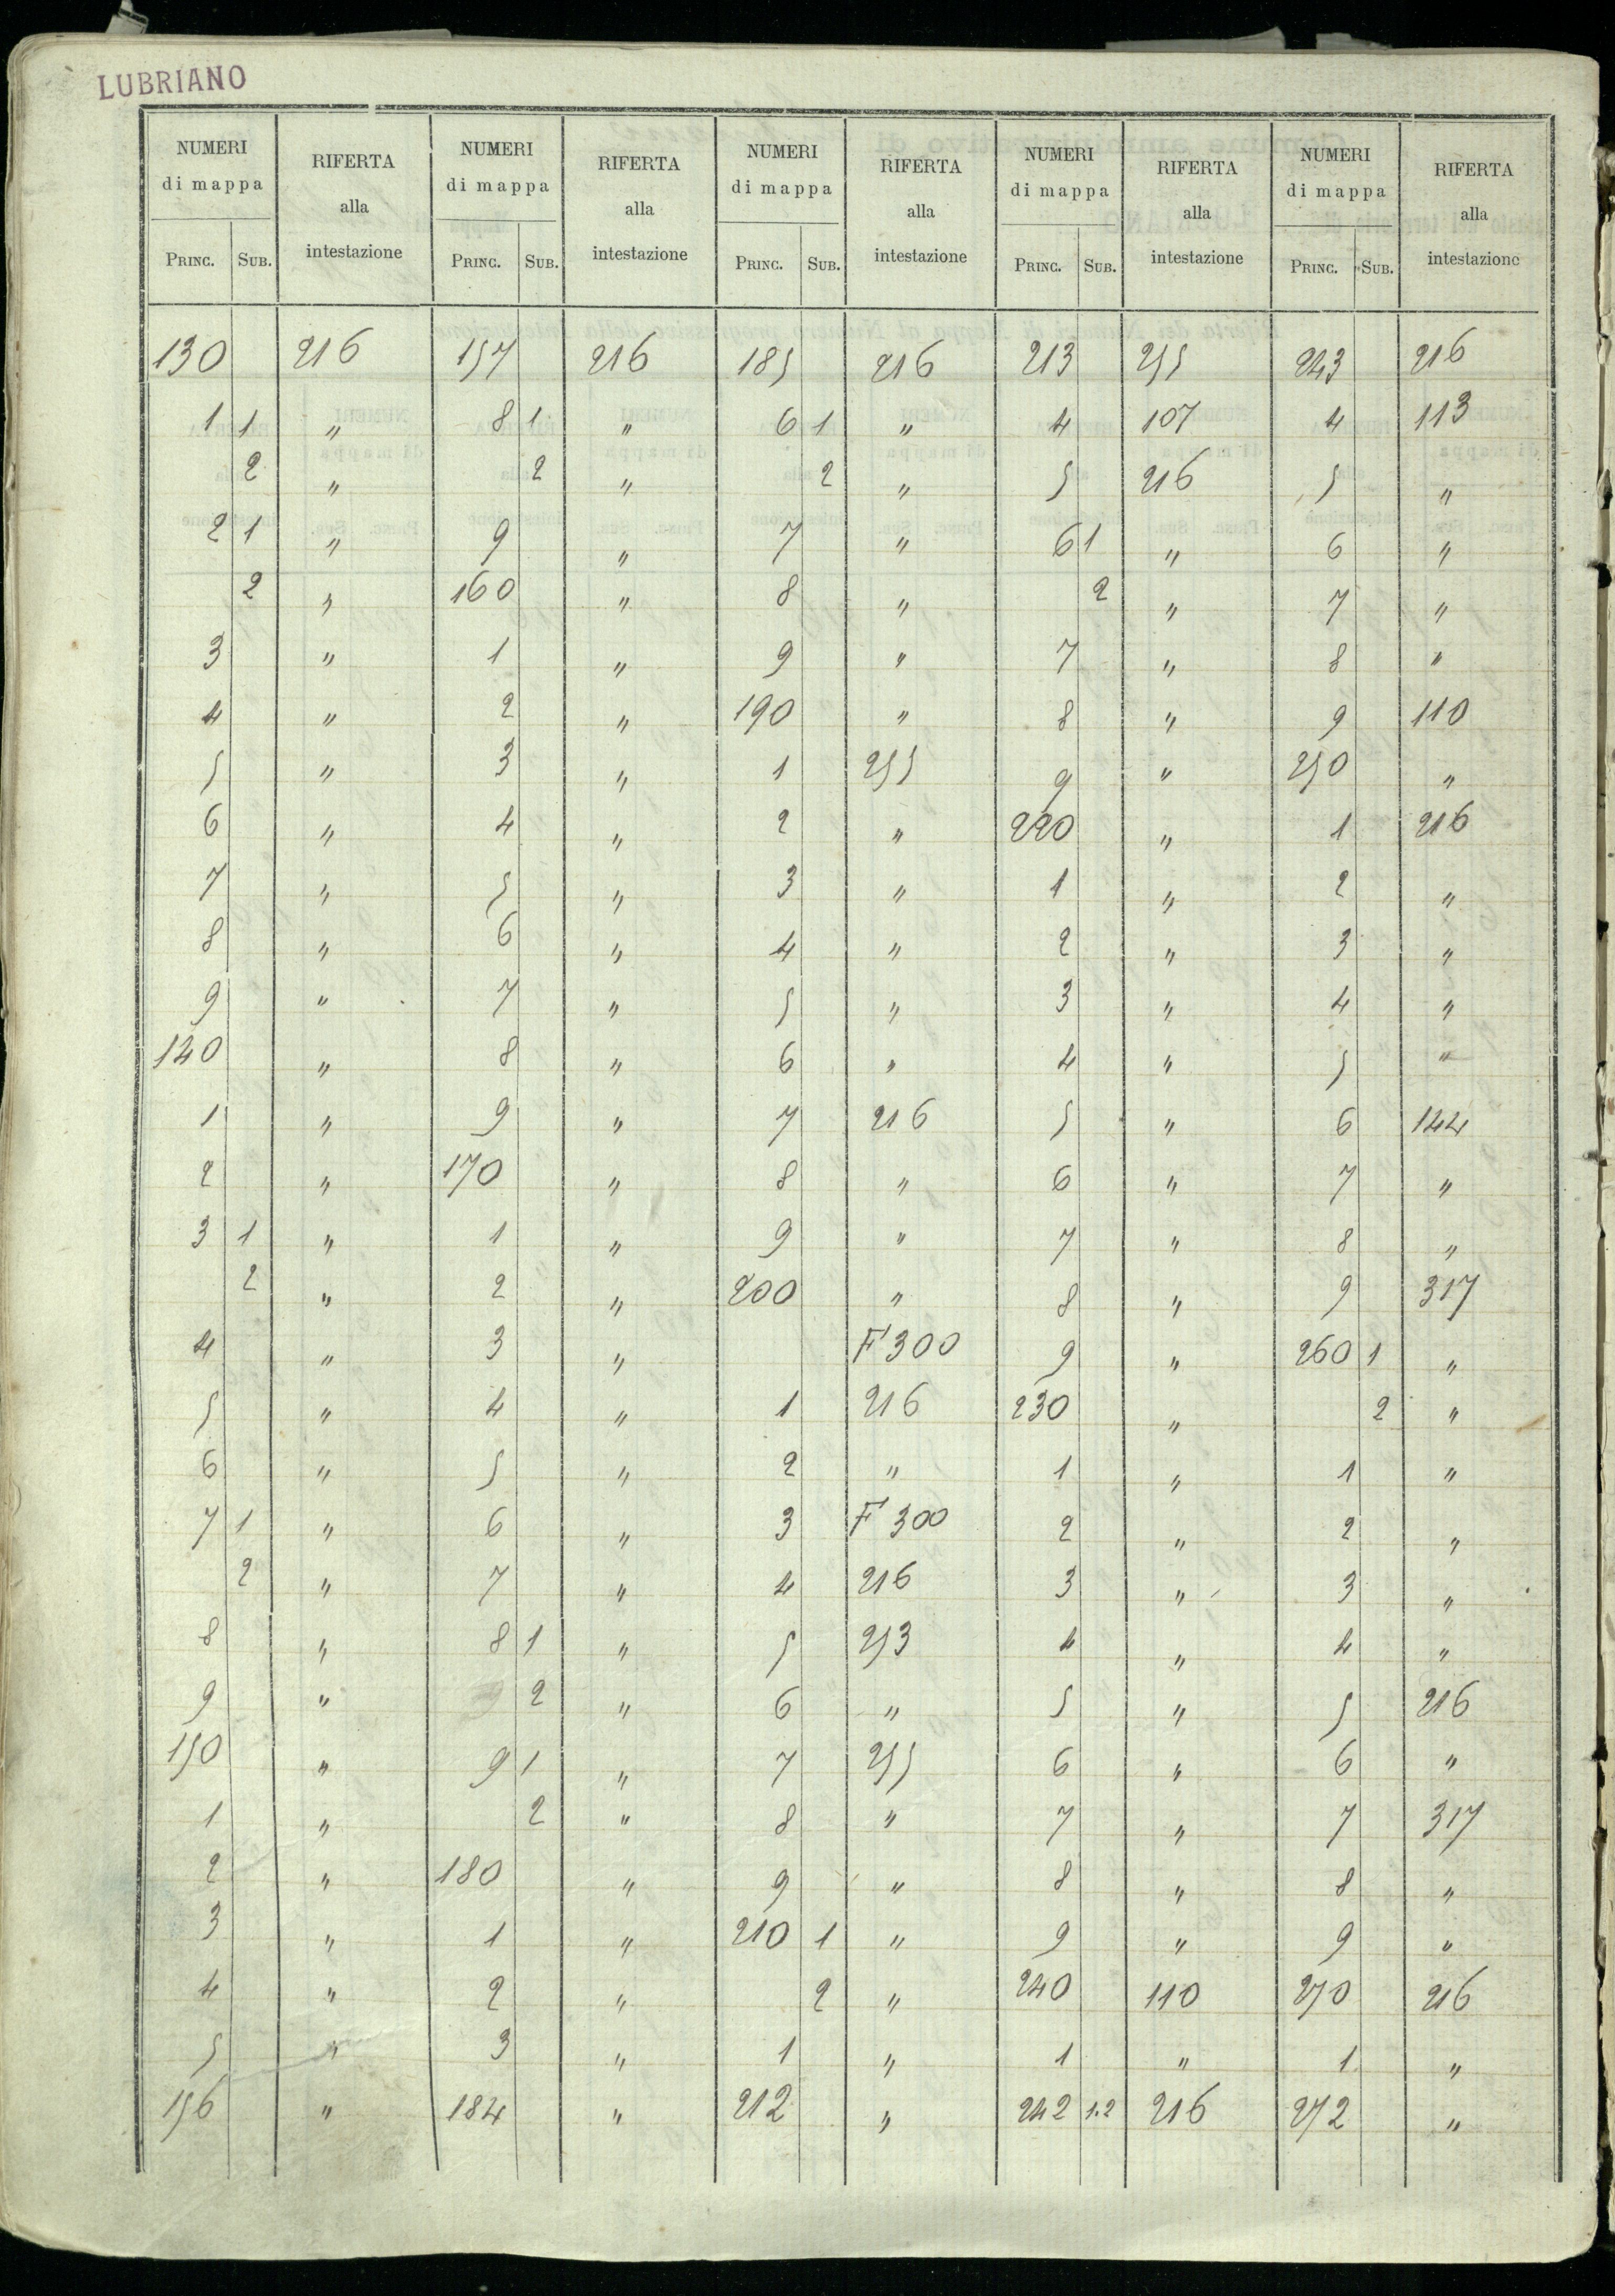 LUBRIANO
NUMERI di mappa RIFERTA alla intestazione NUMERI di mappa RIFERTA alla intestazione NUMERI di mappa RIFERTA alla intestazione NUMERI di mappa RIFERTA alla intestazione NUMERI di mappa RIFERTA alla intestazione
PRINC. SUB. PRINC. SUB. PRINC. SUB. PRINC. SUB. PRINC. SUB.
130 216 157 216 185 216 213 255 243 216
1 1 " 8 1 " 6 1 " 4 107 4 113
2 " 2 " 2 " 5 216 5 "
2 1 " 9 " 7 " 6 1 " 6 "
2 " 160 " 8 " 2 " 7 "
3 " 1 " 9 " 7 " 8 "
4 " 2 " 190 " 8 " 9 110
5 " 3 " 1 255 9 " 250 "
6 " 4 " 2 " 220 " 1 216
7 " 5 " 3 " 1 " 2 "
8 " 6 " 4 " 2 " 3 "
9 " 7 " 5 " 3 " 4 "
140 " 8 " 6 " 4 " 5 "
1 " 9 " 7 216 5 " 6 144
2 " 170 " 8 " 6 " 7 "
3 1 " 1 " 9 " 7 " 8 "
2 " 2 " 200 " 8 " 9 317
4 " 3 " F 300 9 " 260 1 "
5 " 4 " 1 216 230 " 2 "
6 " 5 " 2 " 1 " 1 "
7 1 " 6 " 3 F 300 2 " 2 "
2 " 7 " 4 216 3 " 3 "
8 " 8 1 " 5 253 4 " 4 "
9 " 2 " 6 " 5 " 5 216
150 " 9 1 " 7 255 6 " 6 "
1 " 2 " 8 " 7 " 7 317
2 " 180 " 9 " 8 " 8 "
3 " 1 " 210 1 " 9 " 9 "
4 " 2 " 2 " 240 110 270 216
5 " 3 " 1 " 1 " 1 "
156 " 184 " 212 " 242 1.2 216 272 "